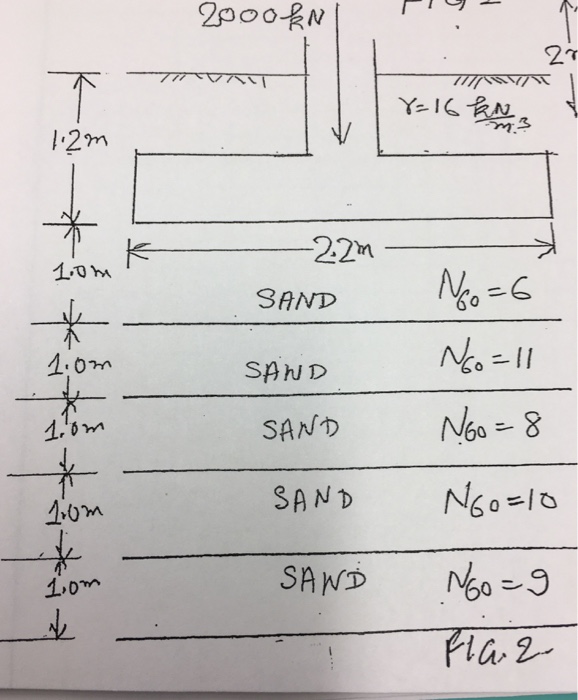 2000kN
2
γ=16 kN/m3
1.2m
2.2m
1.0m SAND N60=6
1.0m SAND N60=11
1.0m SAND N60=8
1.0m SAND N60=10
1.0m SAND N60=9
FIG.2